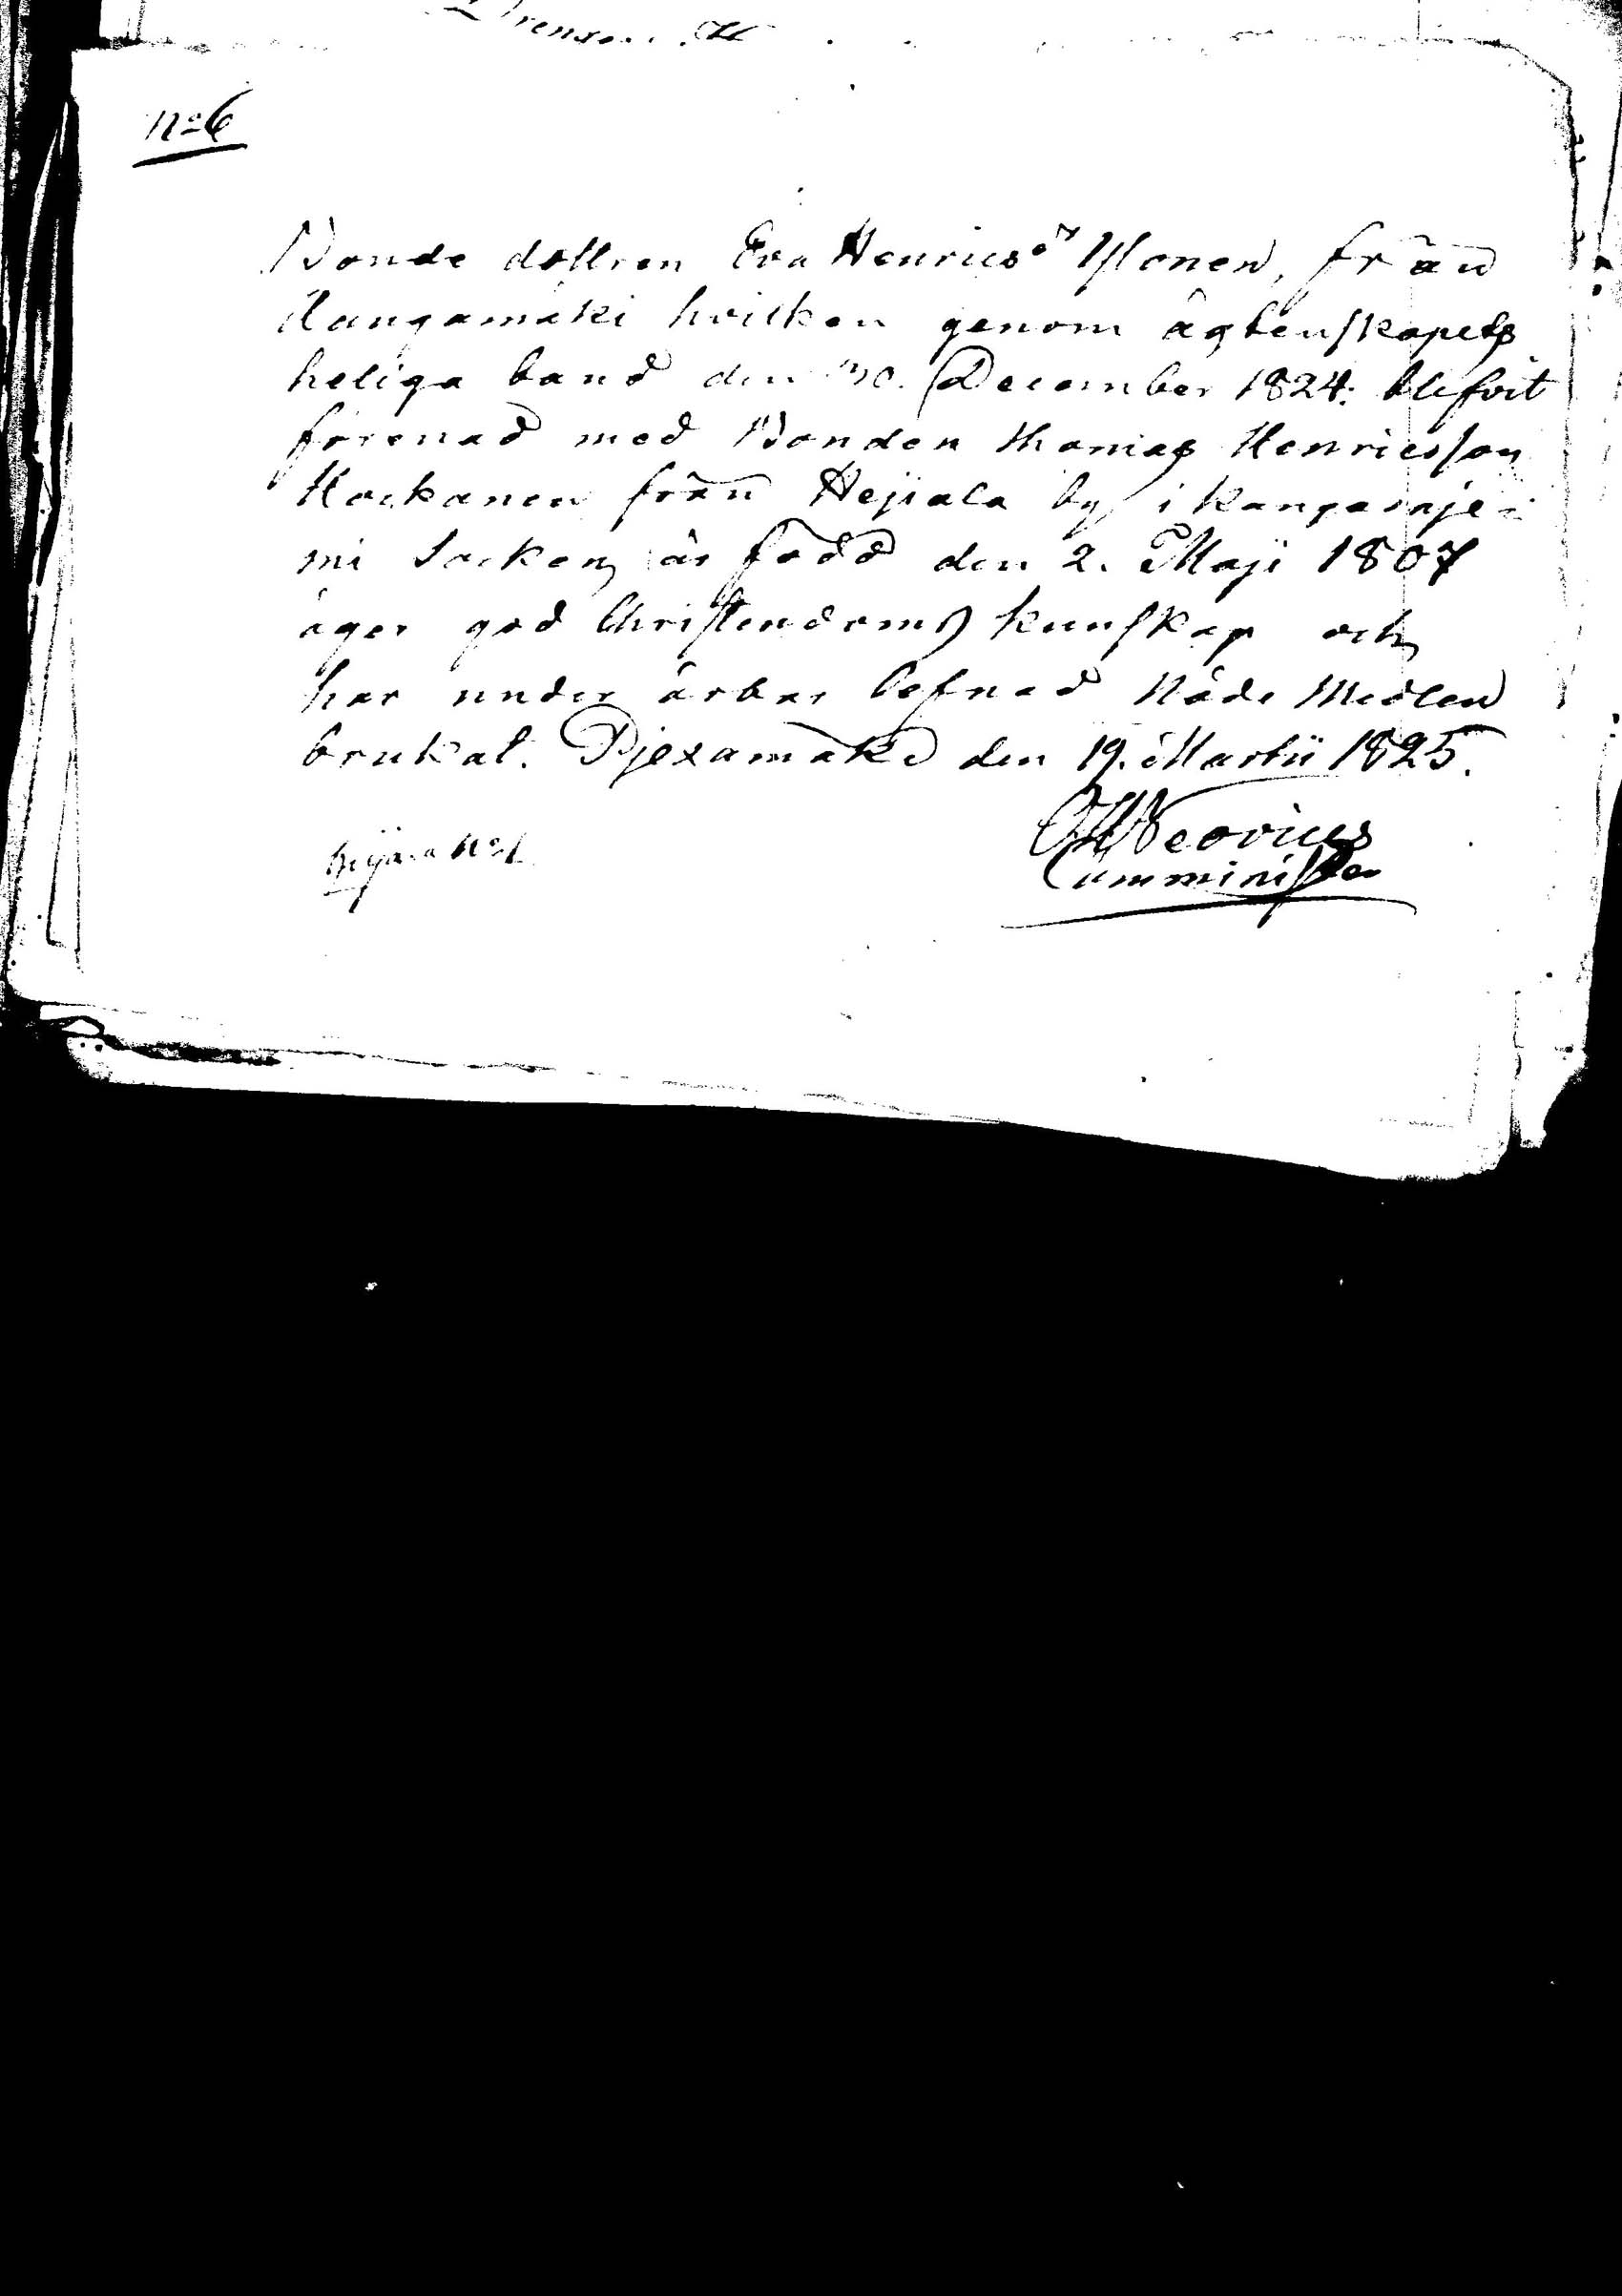 No 6
Bonde dottren Eva Henricsdr Ylönen, från
Kangamäki hvilken genom ägtenskapets
heliga band den 30. December 1824. blefvit
förenad med Bonden Thomas Henricsson
Kockanen från Hejiala by, i Kangasnje-
mi Socken, är född den 2. Maji 1807
äger god Christendoms kunskap och
har under ärbar lefnad Nåde Medlen
brukat. Pjexämäki den 19. Martii 1825.
Neovius
Comminister
No 1